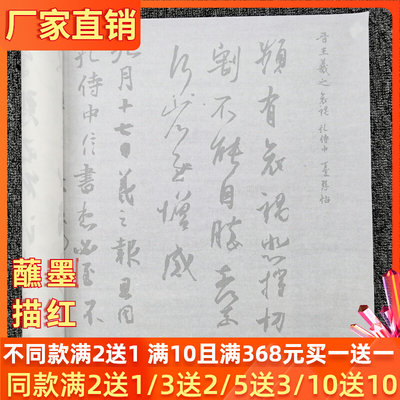 厂家直销
晋王羲之 哀禍 孔侍中 憂懸帖
頻有哀禍悲摧切
割不能自勝奈何
省慰增感
九月十七日羲之報且因
孔侍中信書想必至不
蘸墨
描红
不同款满2送1 满10且满368元买一送一
同款满2送1/3送2/5送3/10送10